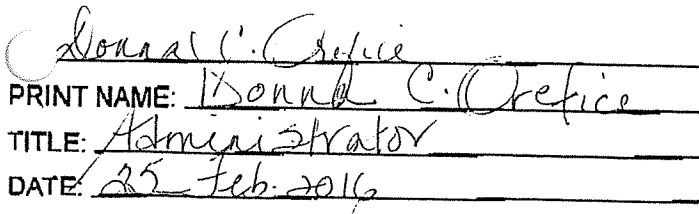 Donna C. Orefice
PRINT NAME: Donna C. Orefice
TITLE: Administrator
DATE: 25 Feb. 2016